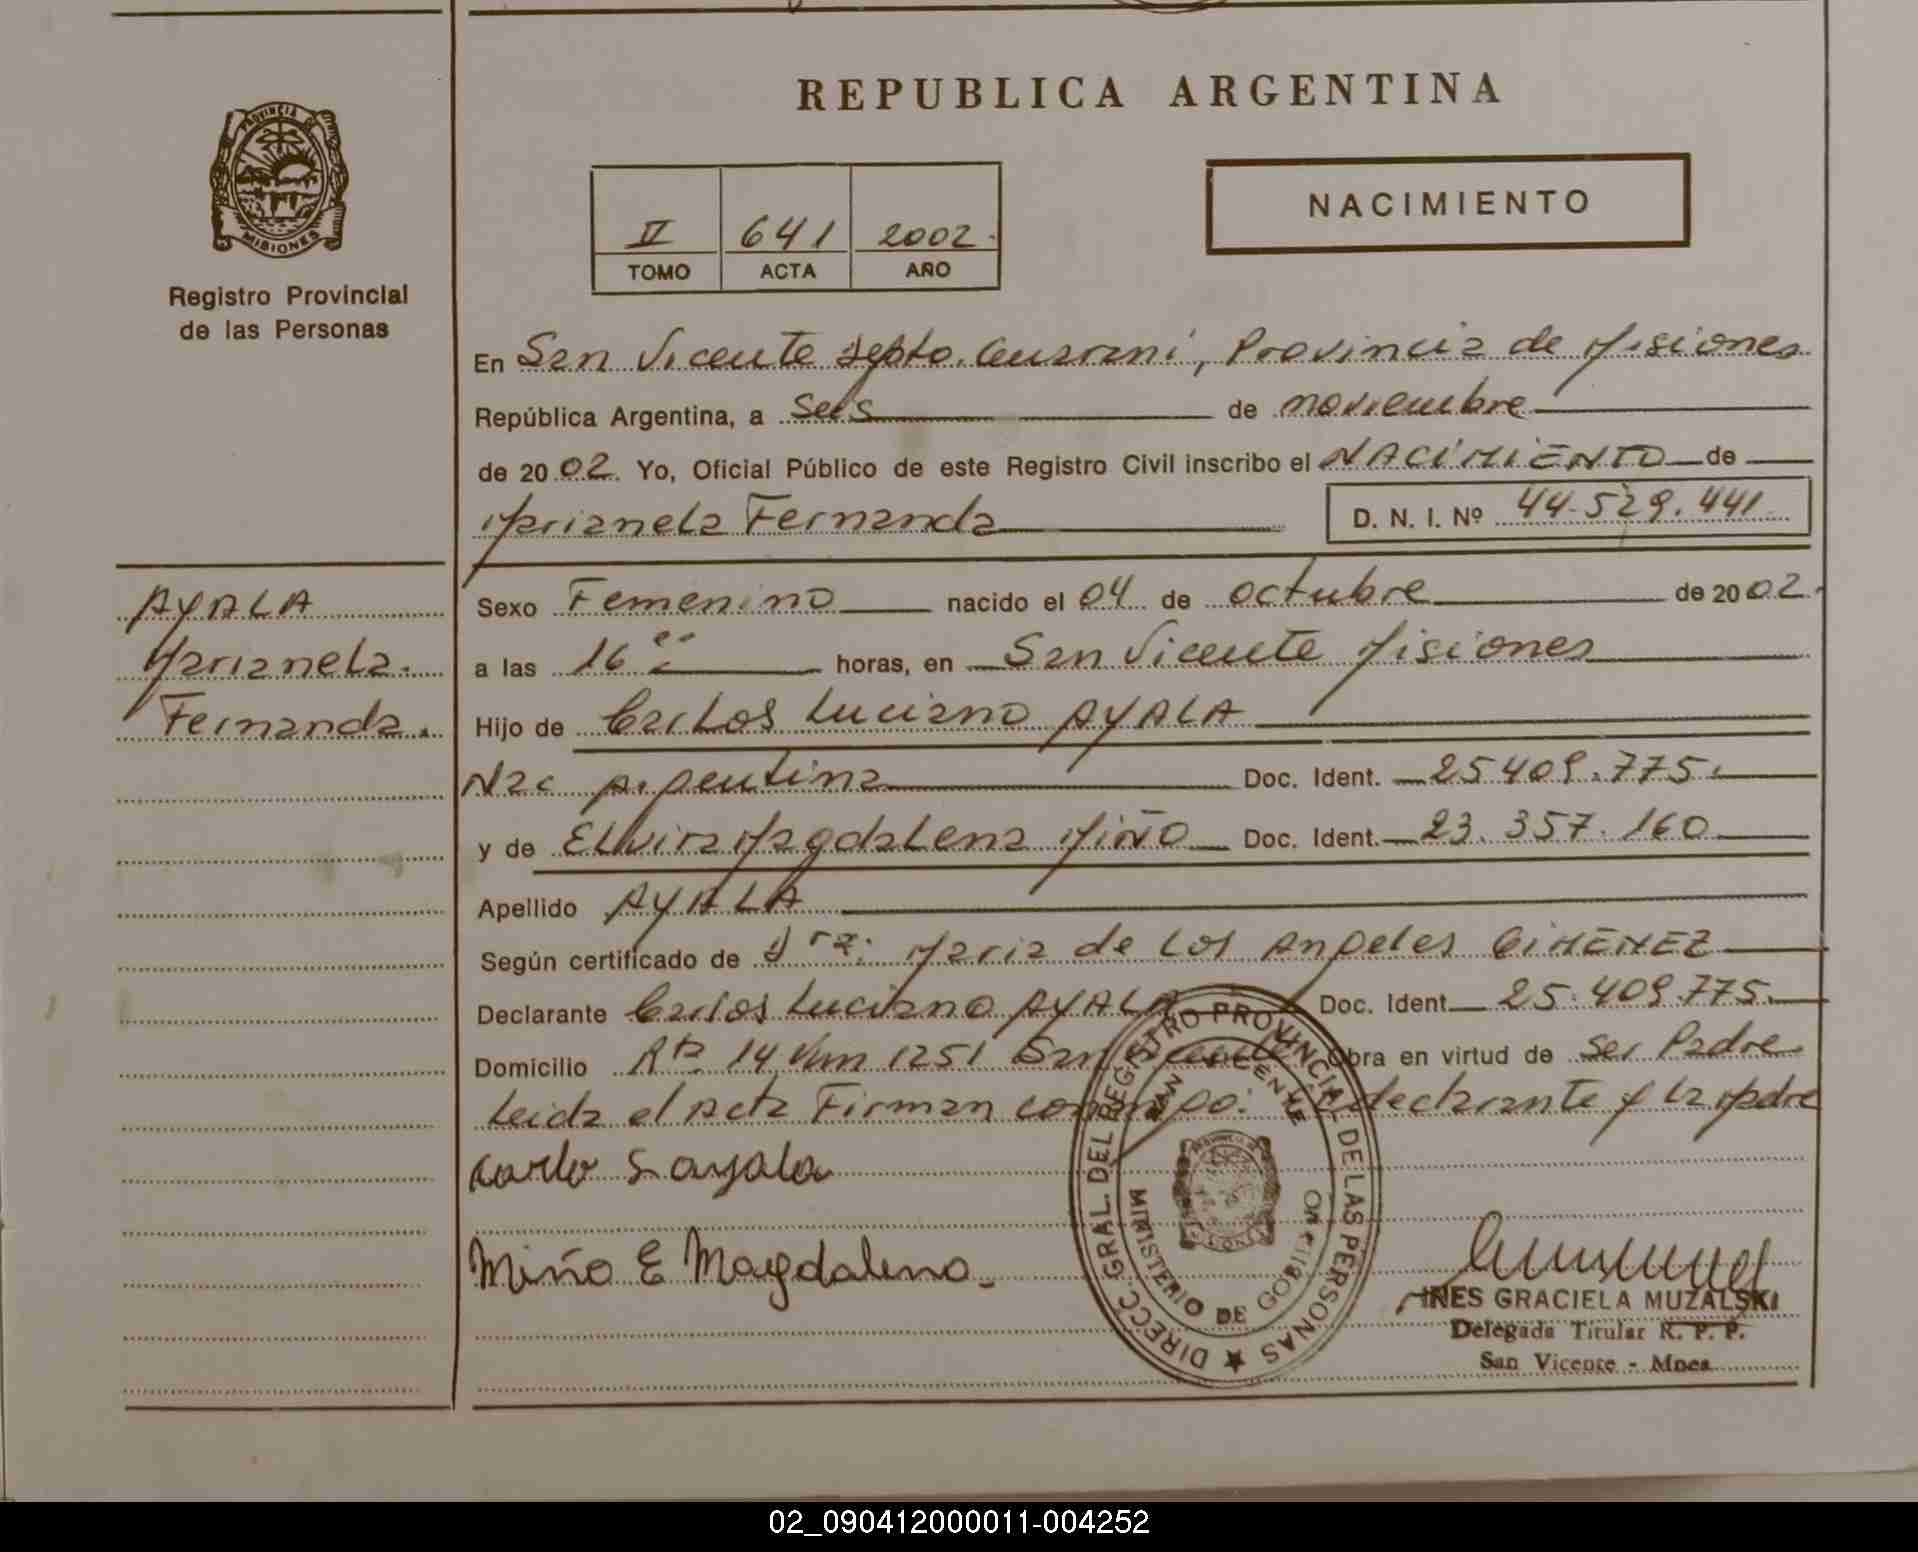 REPUBLICA ARGENTINA
PROVINCIA DE
MISIONES
Registro Provincial
de las Personas
II 641 2002
TOMO ACTA AÑO
NACIMIENTO
En San Vicente Depto. Guarani, Provincia de Misiones
República Argentina, a Seis de noviembre
de 2002. Yo, Oficial Público de este Registro Civil inscribo el NACIMIENTO de
Marianela Fernanda D. N. I. Nº 44.529.441
AYALA
Marianela.
Fernanda.
Sexo Femenino nacido el 04 de octubre de 2002.
a las 16 horas, en San Vicente Misiones
Hijo de Carlos Luciano AYALA
Nac Argentina Doc. Ident. 25.409.775.
y de Elvira Magdalena MiÑO Doc. Ident. 23.357.160
Apellido AYALA
Según certificado de Dra: Maria de los Angeles GIMENEZ
Declarante Carlos Luciano AYALA Doc. Ident 25.409.775.
Domicilio Rta. 14 Km 1251 San Vicente Obra en virtud de Ser Padre
Leida el Acta Firman conmigo: declarante y la Madre
Carlo L ayala
Miño E Magdalena
DIRECC. GRAL. DEL REGISTRO PROVINCIAL DE LAS PERSONAS
SAN VICENTE
MINISTERIO DE GOBIERNO
INES GRACIELA MUZALSKI
Delegada Titular R. P. P.
San Vicente - Mnes
02_090412000011-004252